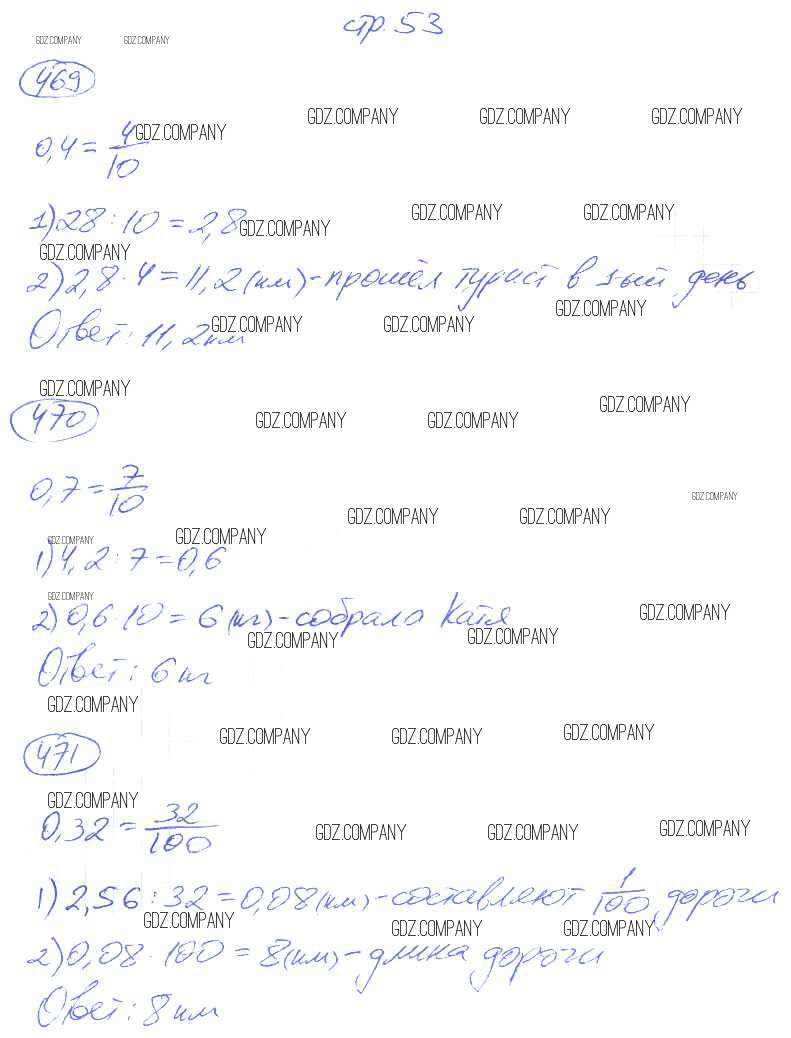 стр. 53
GDZ.COMPANY GDZ.COMPANY
469
GDZ.COMPANY GDZ.COMPANY GDZ.COMPANY
0,4 = 4/10 GDZ.COMPANY
GDZ.COMPANY GDZ.COMPANY
1) 28 : 10 = 2,8 GDZ.COMPANY
GDZ.COMPANY
2) 2,8 · 4 = 11,2 (км) - прошёл турист в 1-ый день
GDZ.COMPANY
Ответ: 11,2 км GDZ.COMPANY GDZ.COMPANY
GDZ.COMPANY
470 GDZ.COMPANY GDZ.COMPANY GDZ.COMPANY
0,7 = 7/10
GDZ.COMPANY
GDZ.COMPANY GDZ.COMPANY
GDZ.COMPANY GDZ.COMPANY
1) 4,2 : 7 = 0,6
GDZ.COMPANY
2) 0,6 · 10 = 6 (кг) - собрала Катя GDZ.COMPANY
GDZ.COMPANY GDZ.COMPANY
Ответ: 6 кг
GDZ.COMPANY
GDZ.COMPANY GDZ.COMPANY GDZ.COMPANY
471
GDZ.COMPANY
0,32 = 32/100 GDZ.COMPANY GDZ.COMPANY GDZ.COMPANY
1) 2,56 : 32 = 0,08 (км) - составляют 1/100 дороги
GDZ.COMPANY GDZ.COMPANY GDZ.COMPANY
2) 0,08 · 100 = 8 (км) - длина дороги
Ответ: 8 км